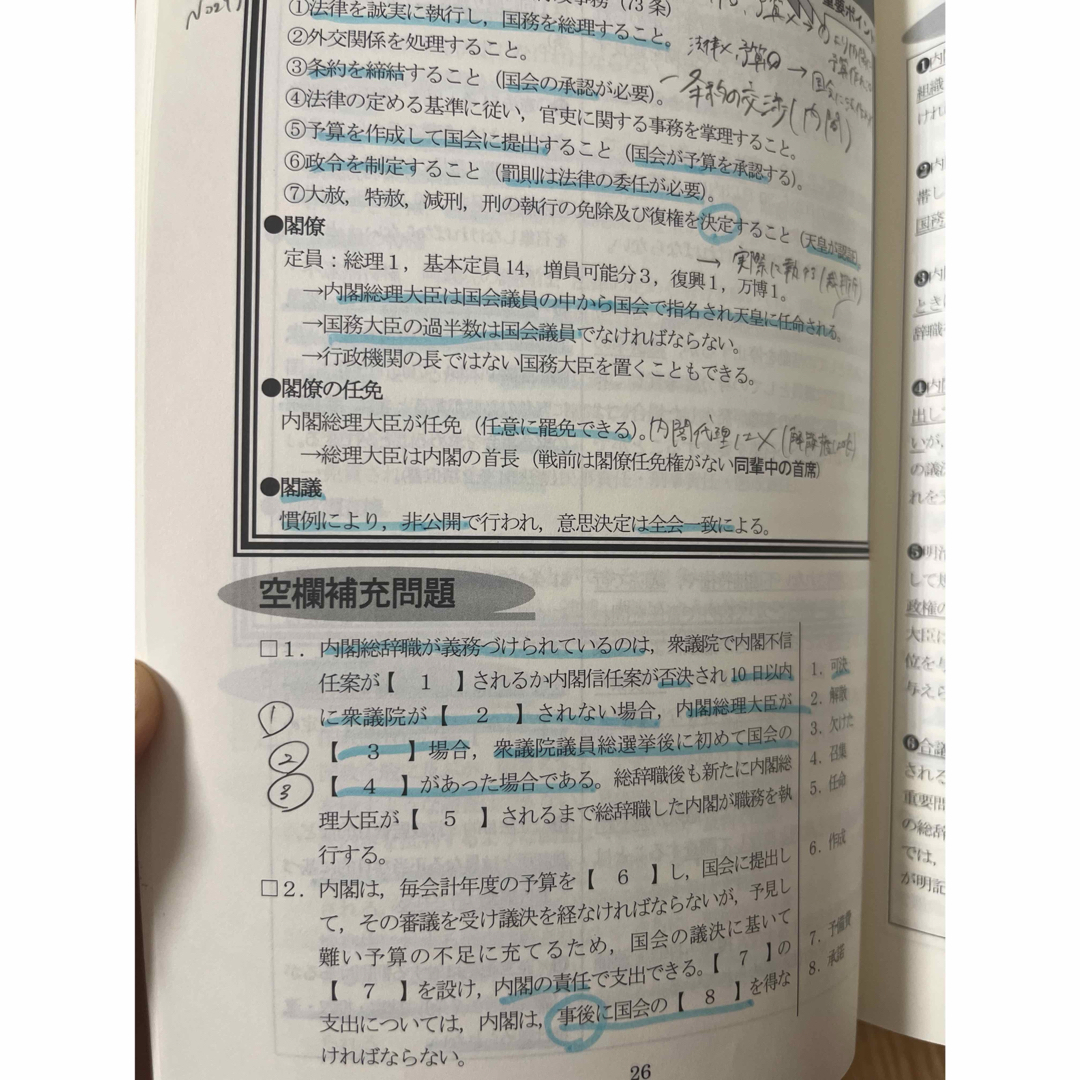 （73条）
重要ポイン
①法律を誠実に執行し，国務を総理すること。
②外交関係を処理すること。
③条約を締結すること（国会の承認が必要）。
条約の交渉(内閣)
④法律の定める基準に従い，官吏に関する事務を掌理すること。
⑤予算を作成して国会に提出すること（国会が予算を承認する）。
⑥政令を制定すること（罰則は法律の委任が必要）。
⑦大赦，特赦，減刑，刑の執行の免除及び復権を決定すること（天皇が認証
●閣僚
定員：総理1，基本定員14，増員可能分3，復興1，万博1。
→内閣総理大臣は国会議員の中から国会で指名され天皇に任命される。
→国務大臣の過半数は国会議員でなければならない。
→行政機関の長ではない国務大臣を置くこともできる。
●閣僚の任免
内閣総理大臣が任免（任意に罷免できる）。
→総理大臣は内閣の首長（戦前は閣僚任免権がない同輩中の首席）
●閣議
慣例により，非公開で行われ，意思決定は全会一致による。
空欄補充問題
□1．内閣総辞職が義務づけられているのは，衆議院で内閣不信
任案が【　1　】されるか内閣信任案が否決され10日以内
①に衆議院が【　2　】されない場合，内閣総理大臣が
②【　3　】場合，衆議院議員総選挙後に初めて国会の
③【　4　】があった場合である。総辞職後も新たに内閣総
理大臣が【　5　】されるまで総辞職した内閣が職務を執
行する。
□2．内閣は，毎会計年度の予算を【　6　】し，国会に提出し
て，その審議を受け議決を経なければならないが，予見し
難い予算の不足に充てるため，国会の議決に基いて
【　7　】を設け，内閣の責任で支出できる。【　7　】の
支出については，内閣は，事後に国会の【　8　】を得な
ければならない。
1．可決
2．解散
3．欠けた
4．召集
5．任命
6．作成
7．予備費
8．承諾
26
❶内
組織
けれ
❷内
帯し
国務
❸内
とき
辞職
❹内
出して
いが，
の議決
れを
❺明治
して
政権の
大臣に
位を
与えら
❻合議
される
重要
の総辞
では，
が明記